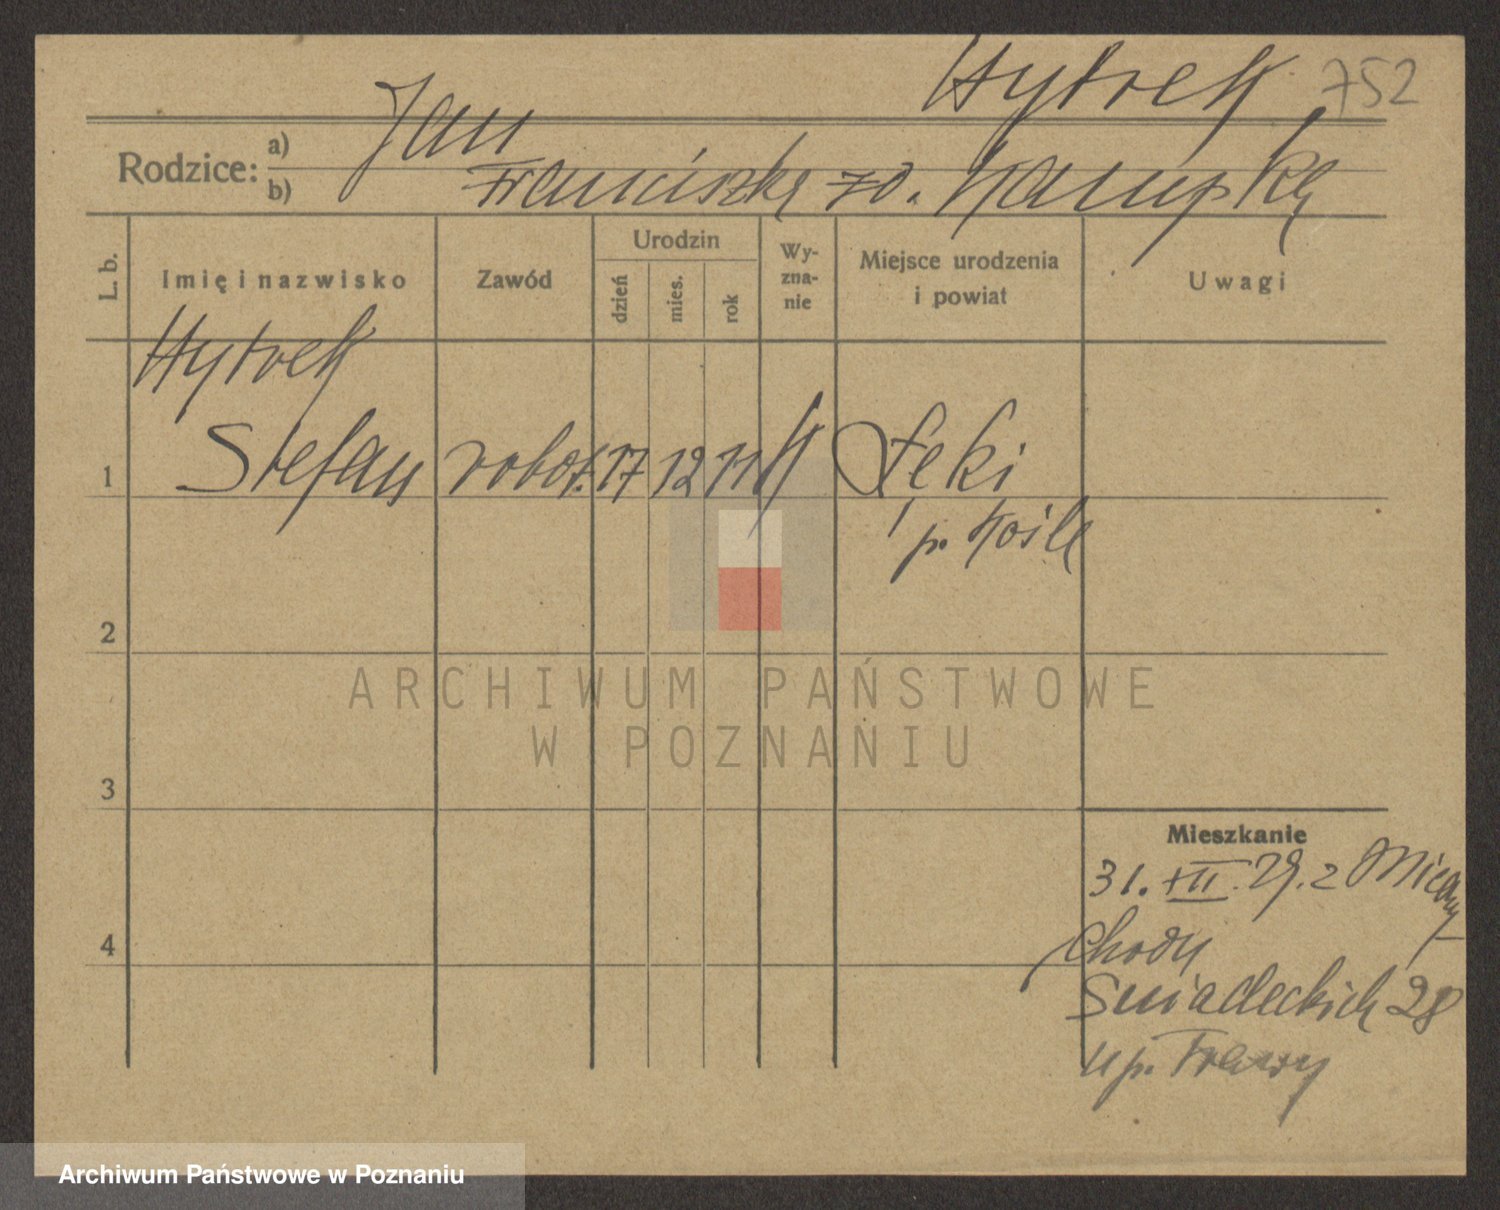 Hytrek 752
Rodzice: a) Jan
b) Franciszka zd. Kampka
L. b. Imię i nazwisko Zawód Urodzin dzień mies. rok Wy-zna-nie Miejsce urodzenia i powiat Uwagi
Hytrek
1 Stefan robot. 17 12 11 K Łęki
p. Koźle
2
3
4
Mieszkanie
31. XII. 29. z
chody
Śniadeckich 28
u p.
ARCHIWUM PAŃSTWOWE
W POZNANIU
Archiwum Państwowe w Poznaniu